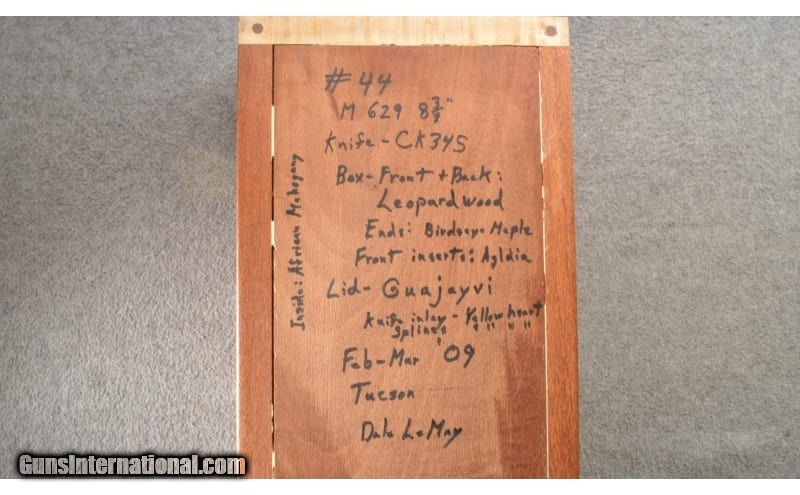 #44
M 629 8 3/4"
Knife - CK34S
Box - Front + Back:
Leopardwood
Ends: Birdseye Maple
Front inserts: Agldia
Lid - Guajayvi
Knife inlay - Yellow heart
Splines " " " "
Feb-Mar '09
Tucson
Dale LeMay
Inside: African Mahogany
GunsInternational.com